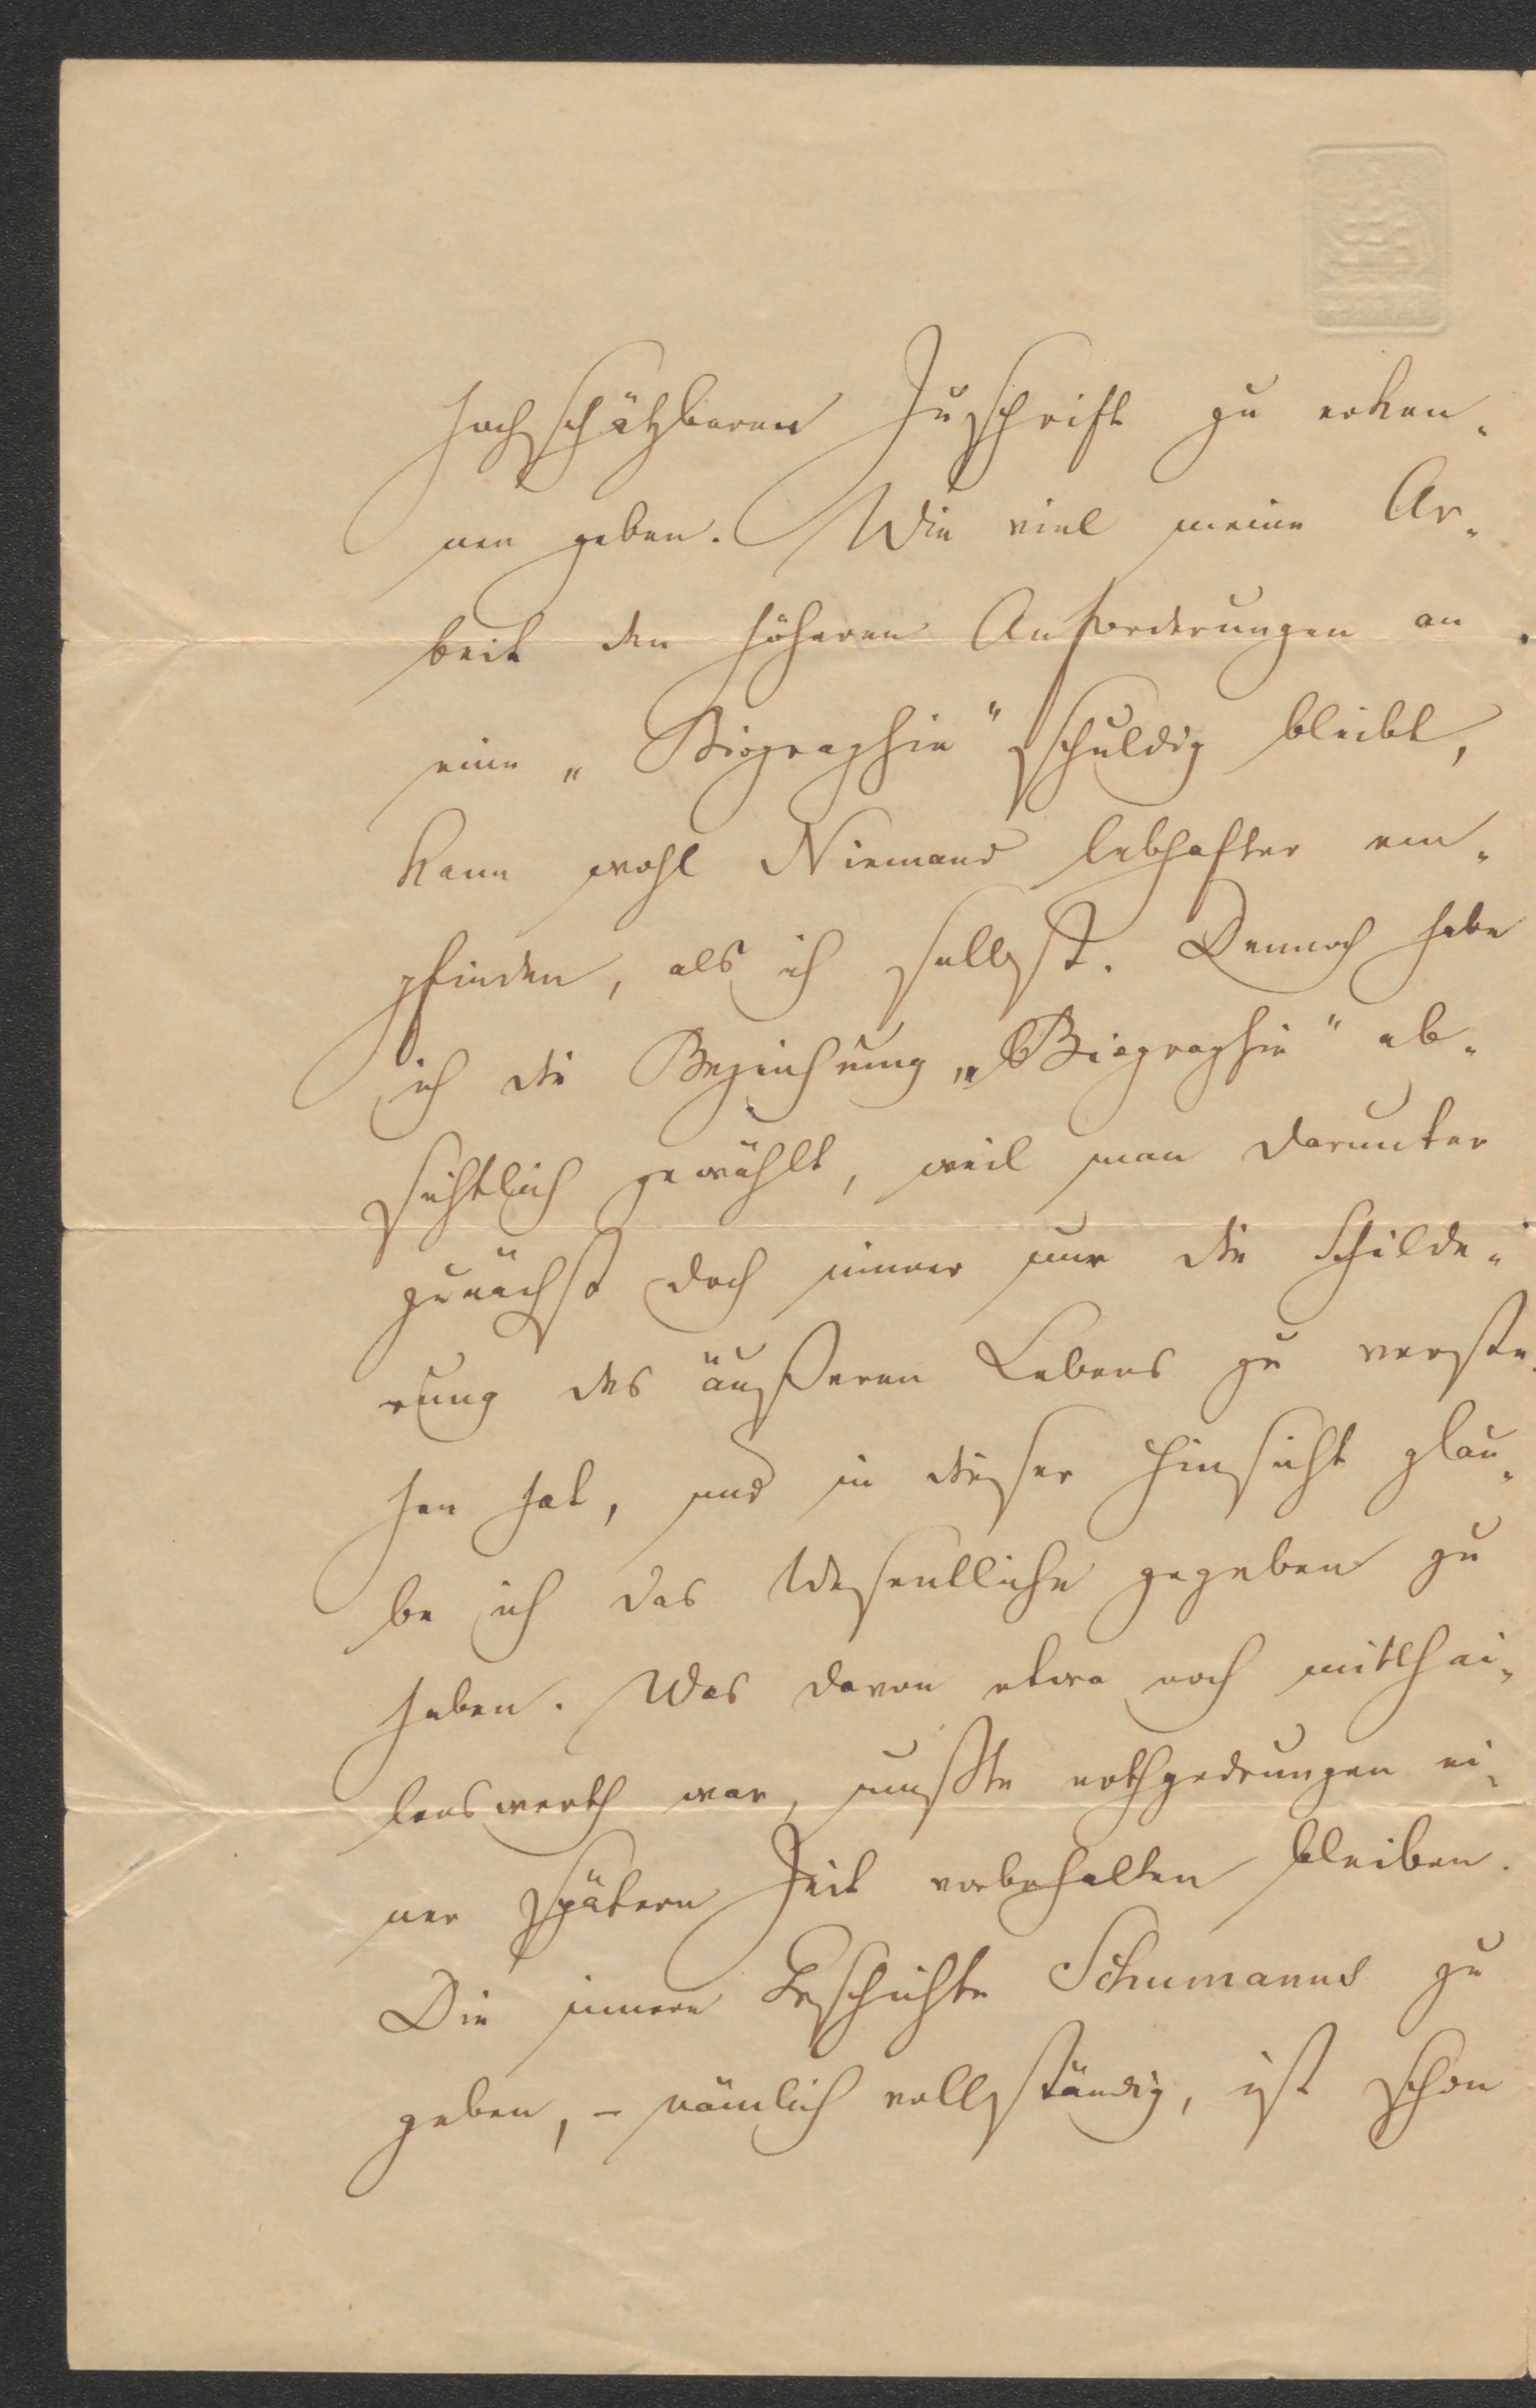 hochschätzbaren Zuschrift zu erken-
nen geben. Wie viel meine Ar-
beit den höheren Anforderungen an
eine „Biographie" schuldig bleibt,
kann wohl Niemand lebhafter em-
pfinden, als ich selbst. Dennoch habe
ich die Bezeichnung „Biographie" ab-
sichtlich gewählt, weil man darunter
zunächst doch immer nur die Schilde-
rung des äußeren Lebens zu verste-
hen hat, und in dieser Hinsicht glau-
be ich das Wesentliche gegeben zu
haben. Was davon etwa noch mitthei-
lenswerth war, mußte nothgedrungen ei-
ner spätern Zeit vorbehalten bleiben.
Die innere Geschichte Schumanns zu
geben, – nämlich vollständig, ist schon